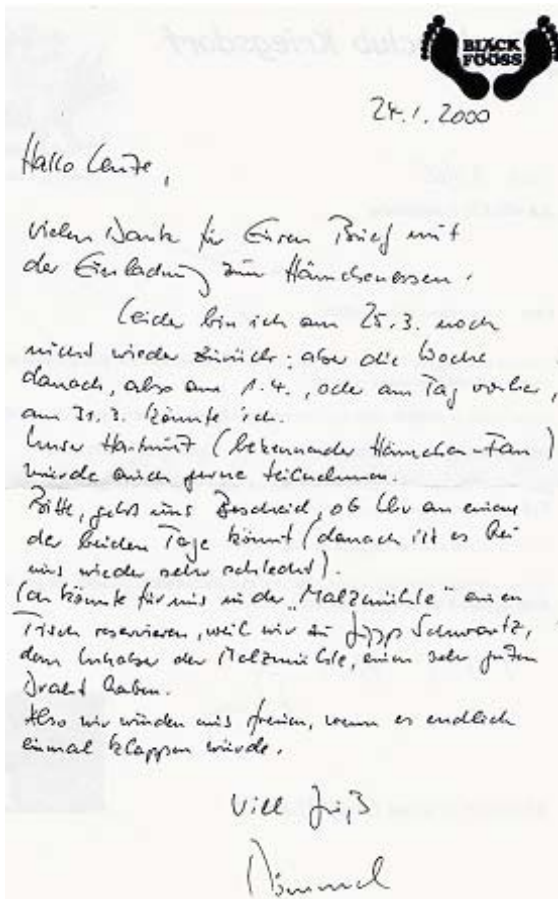 BLÄCK
FÖÖSS
24.1.2000
Hallo Leute,
vielen Dank für Euren Brief mit
der Einladung zum Hämchenessen.
Leider bin ich am 25.3. noch
nicht wieder zurück; aber die Woche
danach, also am 1.4., oder am Tag vorher,
am 31.3. könnte ich.
Unser Hartmut (bekennender Hämchen-Fan)
würde auch gerne teilnehmen.
Bitte, gebt uns Bescheid, ob Ihr an einem
der beiden Tage könnt (danach ist es bei
uns wieder sehr schlecht).
Ich könnte für uns in der „Malzmühle" einen
Tisch reservieren, weil wir zu Schwartz,
dem Inhaber der Malzmühle, einen sehr guten
Draht haben.
Also wir würden uns freuen, wenn es endlich
einmal klappen würde.
Viel Jröß
Bömmel